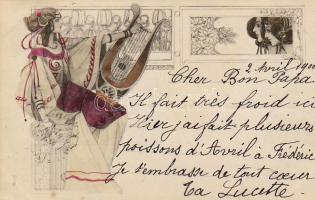 2 Avril 1900
Cher Bon Papa
Il fait très froid ici
Hier j'ai fait plusieurs
poissons d'Avril à Frédéric
Je t'embrasse de tout cœur
Ta Lucette.